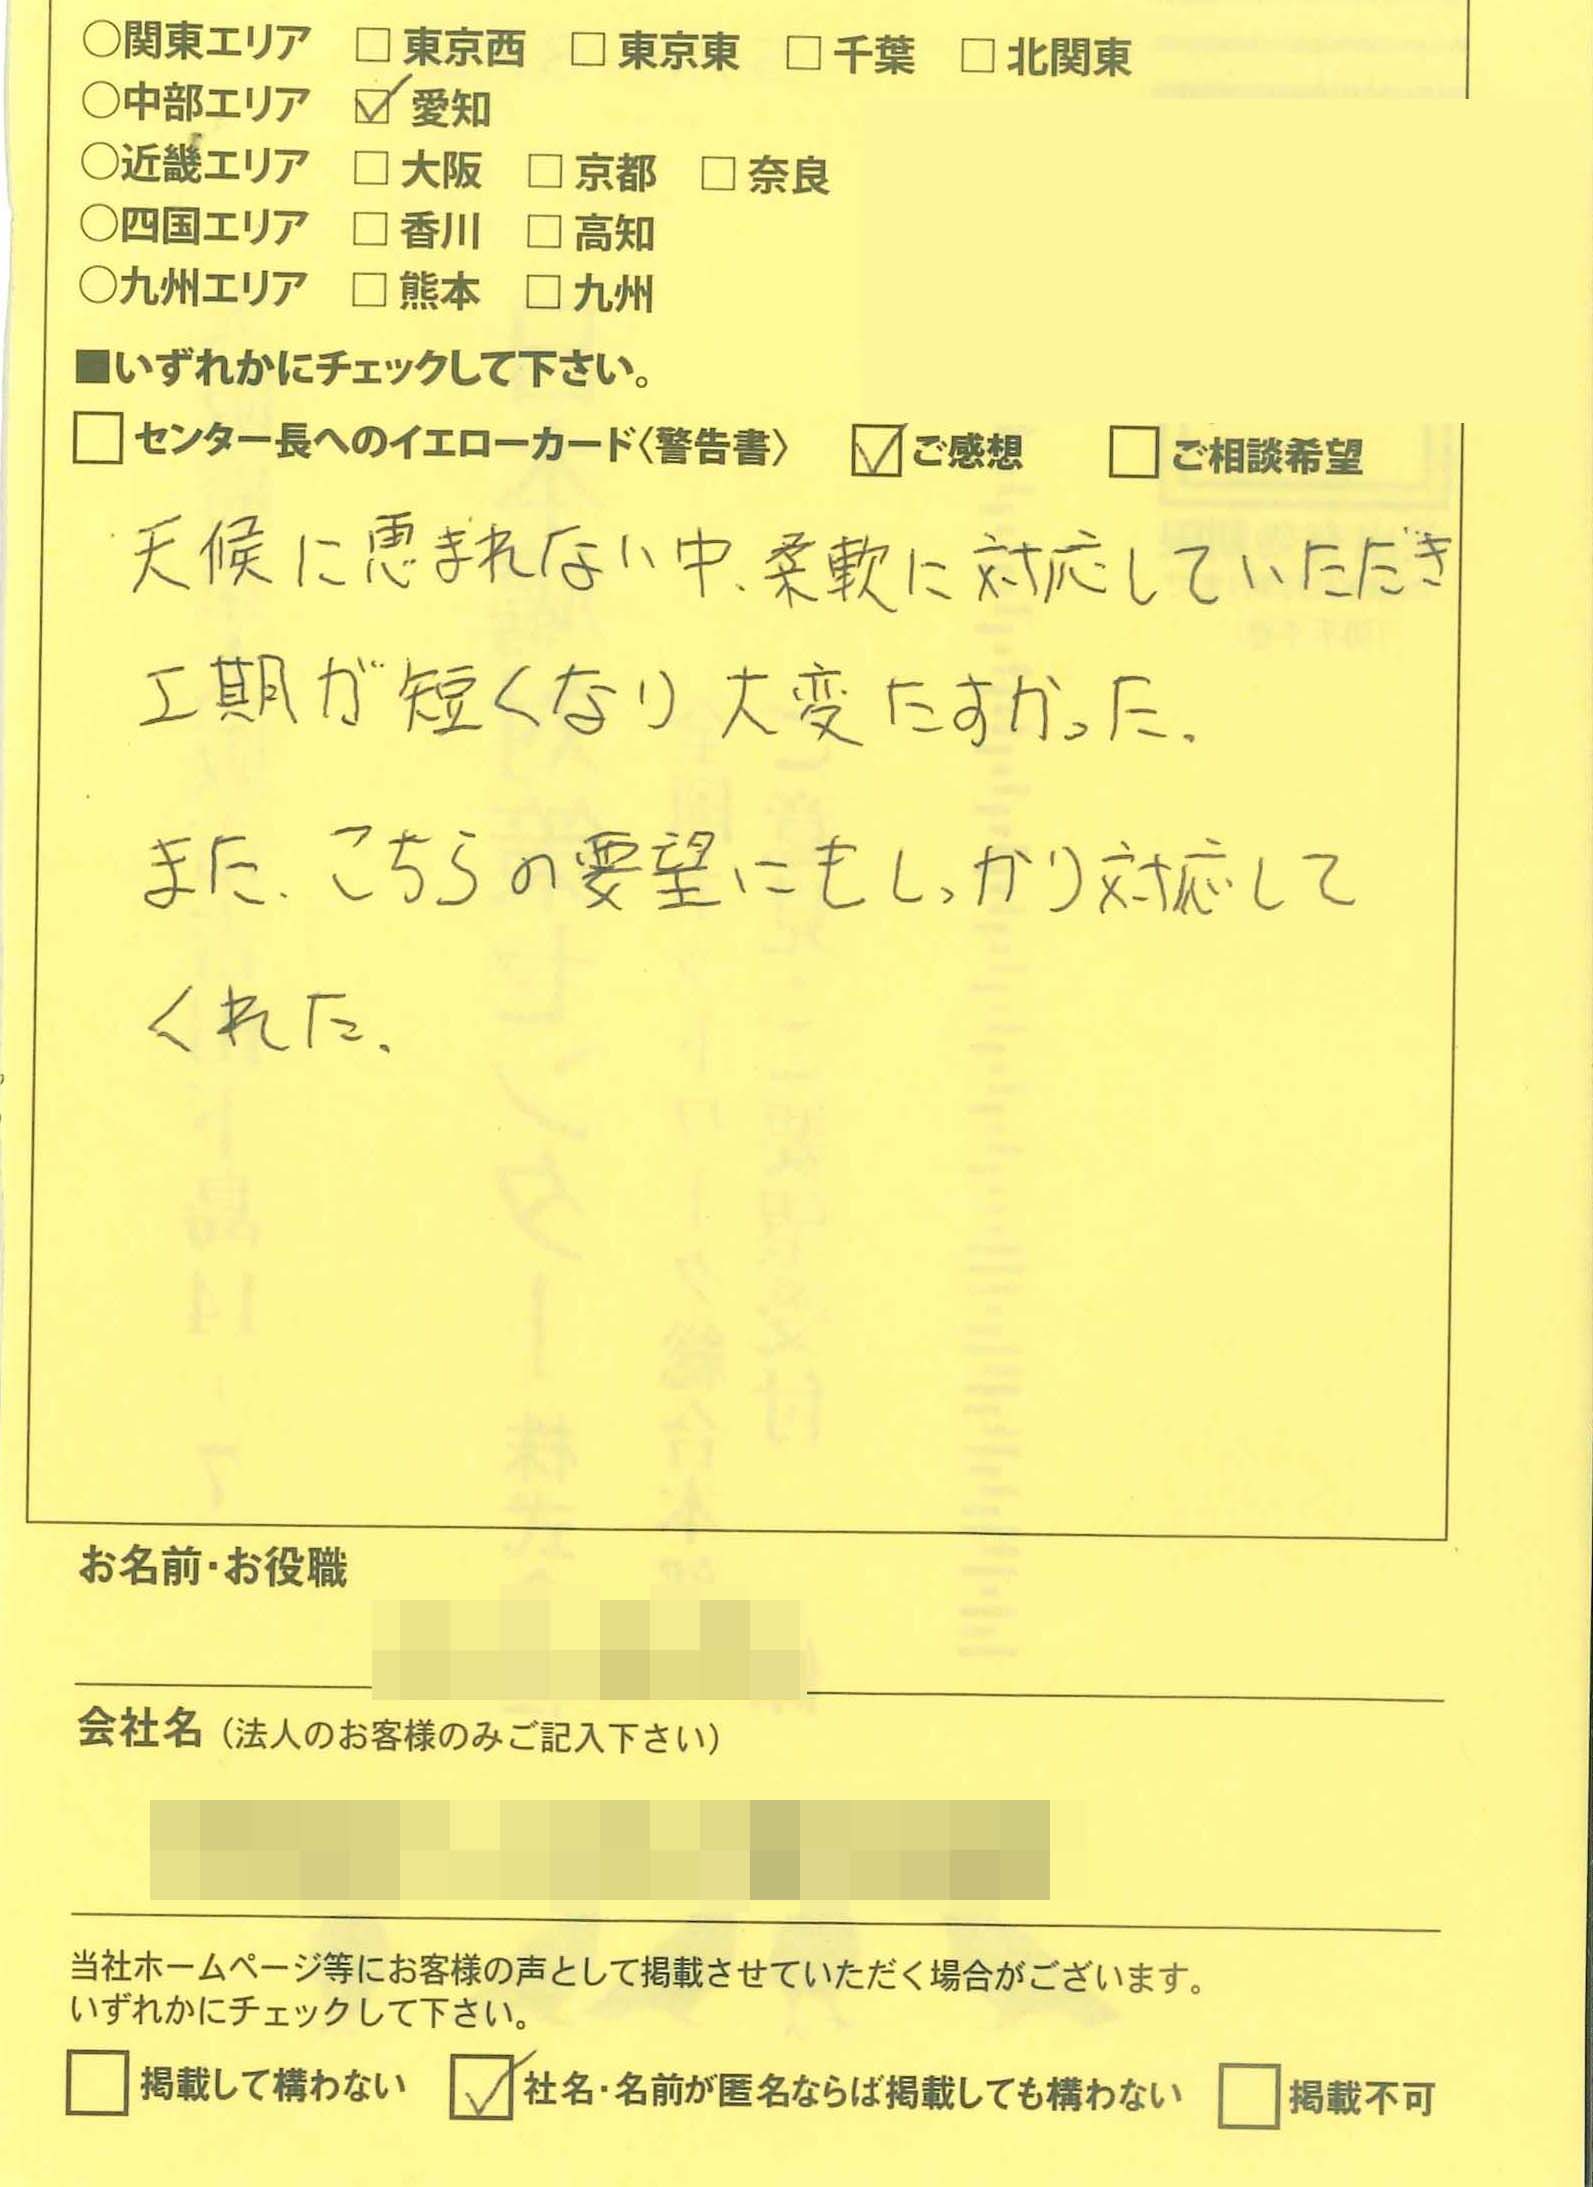 ○関東エリア □ 東京西 □ 東京東 □ 千葉 □ 北関東
○中部エリア ☑ 愛知
○近畿エリア □ 大阪 □ 京都 □ 奈良
○四国エリア □ 香川 □ 高知
○九州エリア □ 熊本 □ 九州
■いずれかにチェックして下さい。
□ センター長へのイエローカード〈警告書〉 ☑ ご感想 □ ご相談希望
天候に恵まれない中、柔軟に対応していただき
工期が短くなり大変たすかった。
また、こちらの要望にもしっかり対応して
くれた。
お名前・お役職
会社名（法人のお客様のみご記入下さい）
当社ホームページ等にお客様の声として掲載させていただく場合がございます。
いずれかにチェックして下さい。
□ 掲載して構わない ☑ 社名・名前が匿名ならば掲載しても構わない □ 掲載不可